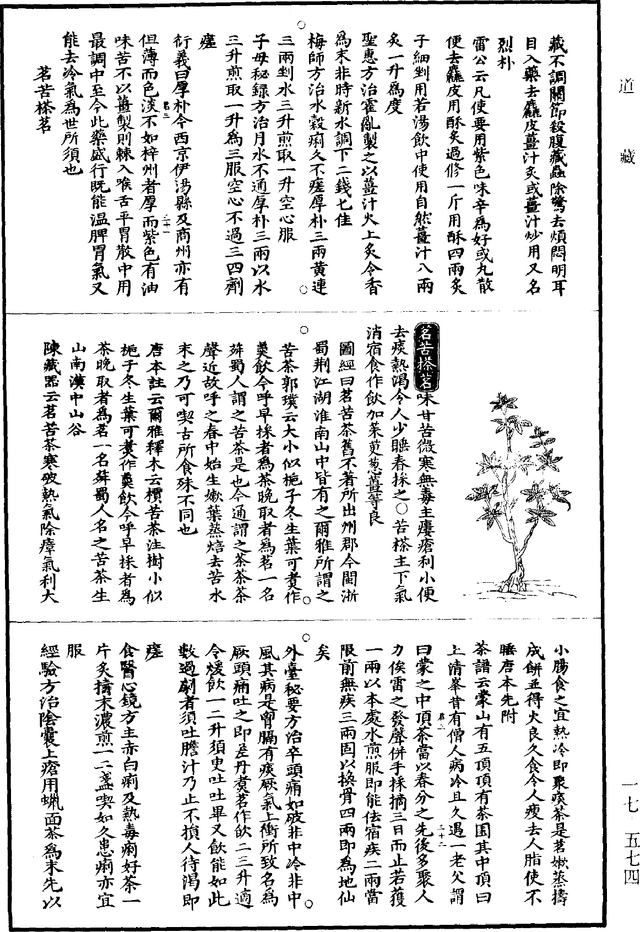 道藏
藏不調關節殺腹藏蟲除驚去煩悶明耳
目入藥去麤皮薑汁炙或薑汁炒用又名
烈朴
雷公云凡使要用紫色味辛為好或丸散
便去麤皮用酥炙過修一斤用酥四兩炙
子細剉用若湯飲中使用自然薑汁八兩
炙一升為度
聖惠方治霍亂製之以薑汁火上炙令香
為末非時新水調下二錢匕佳
梅師方治水穀痢久不瘥厚朴三兩黃連
三兩剉水三升煎取一升空心服
子母秘錄方治月水不通厚朴三兩以水
三升煎取一升為三服空心不過三四劑
瘥
衍義曰厚朴今西京伊湯縣及商州亦有
但薄而色淡不如梓州者厚而紫色有油
味苦不以薑製則棘人喉舌平胃散中用
最調中至今此藥盛行既能溫脾胃氣又
能去冷氣為世所須也
茗苦搽茗
名苦搽茗味甘苦微寒無毒主瘻瘡利小便
去痰熱渴令人少睡春採之〇苦搽主下氣
消宿食作飲加茱萸葱薑等良
圖經曰茗苦茶舊不著所出州郡今閩浙
蜀荆江湖淮南山中皆有之爾雅所謂之
苦茶郭璞云大小似梔子冬生葉可煮作
羹飲今呼早採者為茶晚取者為茗一名
荈蜀人謂之苦茶是也今通謂之茶茶茶
聲近故呼之春中始生嫩葉蒸焙去苦水
末之乃可喫古所食殊不同也
唐本註云爾雅釋木云檟苦茶注樹小似
梔子冬生葉可煮作羹飲今呼早採者為
茶晚取者為茗一名荈蜀人名之苦茶生
山南漢中山谷
陳藏器云茗苦茶寒破熱氣除瘴氣利大
小腸食之宜熱冷即聚痰茶是茗嫩蒸擣
成餅並得火良久食令人瘦去人脂使不
睡唐本先附
茶譜云蒙山有五頂頂有茶園其中頂曰
上清峯昔有僧人病冷且久遇一老父謂
曰蒙之中頂茶當以春分之先後多聚人
力俟雷之發聲併手採摘三日而止若獲
一兩以本處水煎服即能祛宿疾二兩當
限前無疾三兩固以換骨四兩即為地仙
矣
外臺秘要方治卒頭痛如破非中冷非中
風其病是胷膈有痰厥氣上衝所致名為
厥頭痛吐之即差丹煮茗作飲二三升適
令煖飲一二升須臾吐吐畢又飲能如此
數過劇者須吐膽汁乃止不損人待渴即
瘥
食醫心鏡方主赤白痢及熱毒痢好茶一
斤炙擣末濃煎一二盞喫如久患痢亦宜
服
經驗方治陰囊上瘡用蠟面茶為末先以
一七 五七四